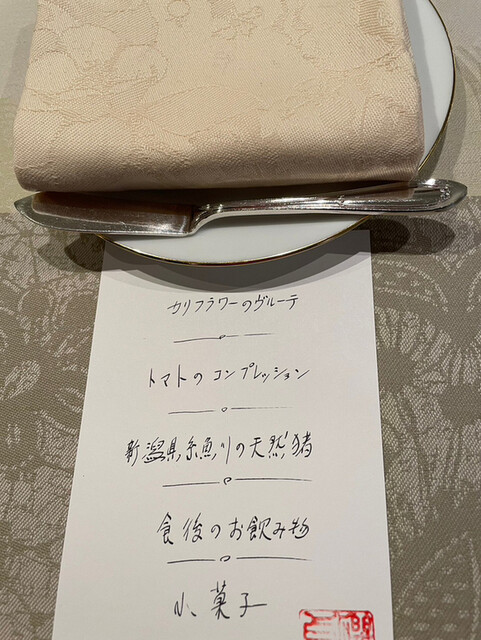 カリフラワーのヴルーテ
トマトのコンプレッション
新潟県糸魚川の天然猪
食後のお飲み物
小菓子